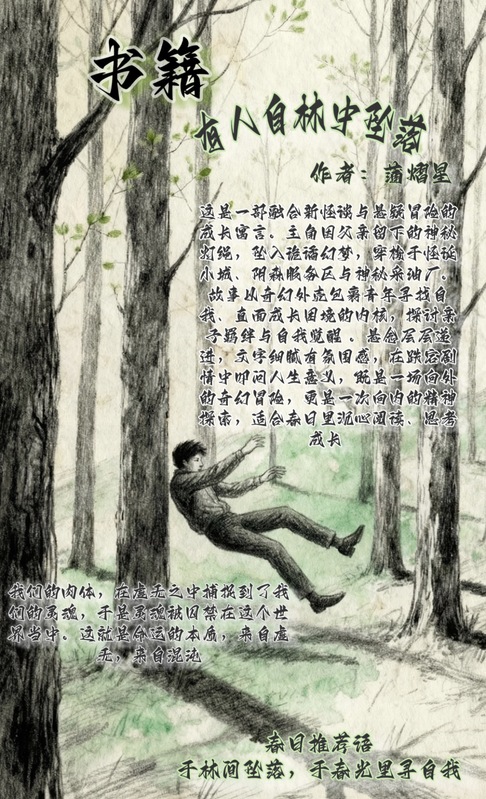 书籍
有人自林中坠落
作者：蒲熠星
这是一部融合新怪谈与悬疑冒险的
成长寓言。主角因父亲留下的神秘
灯绳，坠入诡谲幻梦，穿梭于怪诞
小城、阴森服务区与神秘采油厂。
故事以奇幻外壳包裹青年寻找自
我、直面成长困境的内核，探讨亲
子羁绊与自我觉醒。悬念层层递
进，文字细腻有氛围感，在跌宕剧
情中叩问人生意义，既是一场向外
的奇幻冒险，更是一次向内的精神
探索，适合春日里沉心阅读、思考
成长
我们的肉体，在虚无之中捕捉到了我
们的灵魂，于是灵魂被囚禁在这个世
界当中。这就是命运的本质，来自虚
无，来自混沌
春日推荐语
于林间坠落，于春光里寻自我